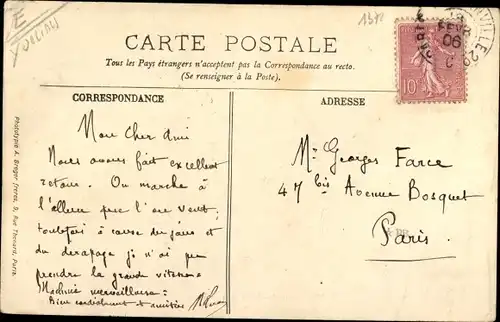 E
CARTE POSTALE
Tous les Pays étrangers n'acceptent pas la Correspondance au recto.
(Se renseigner à la Poste).
CORRESPONDANCE
Mon cher Ami
Nous avons fait excellent
retour. On marche à
l'allure que l'on veut,
toutefois à cause du
du dérapage je n'ai pu
prendre la grande vitesse
Machine merveilleuse.
Bien cordialement
ADRESSE
Mr Georges Farce
47 bis Avenue Bosquet
Paris
FEVR
06
10
Phototypie A. Breger frères, 9, Rue Thénard, Paris.